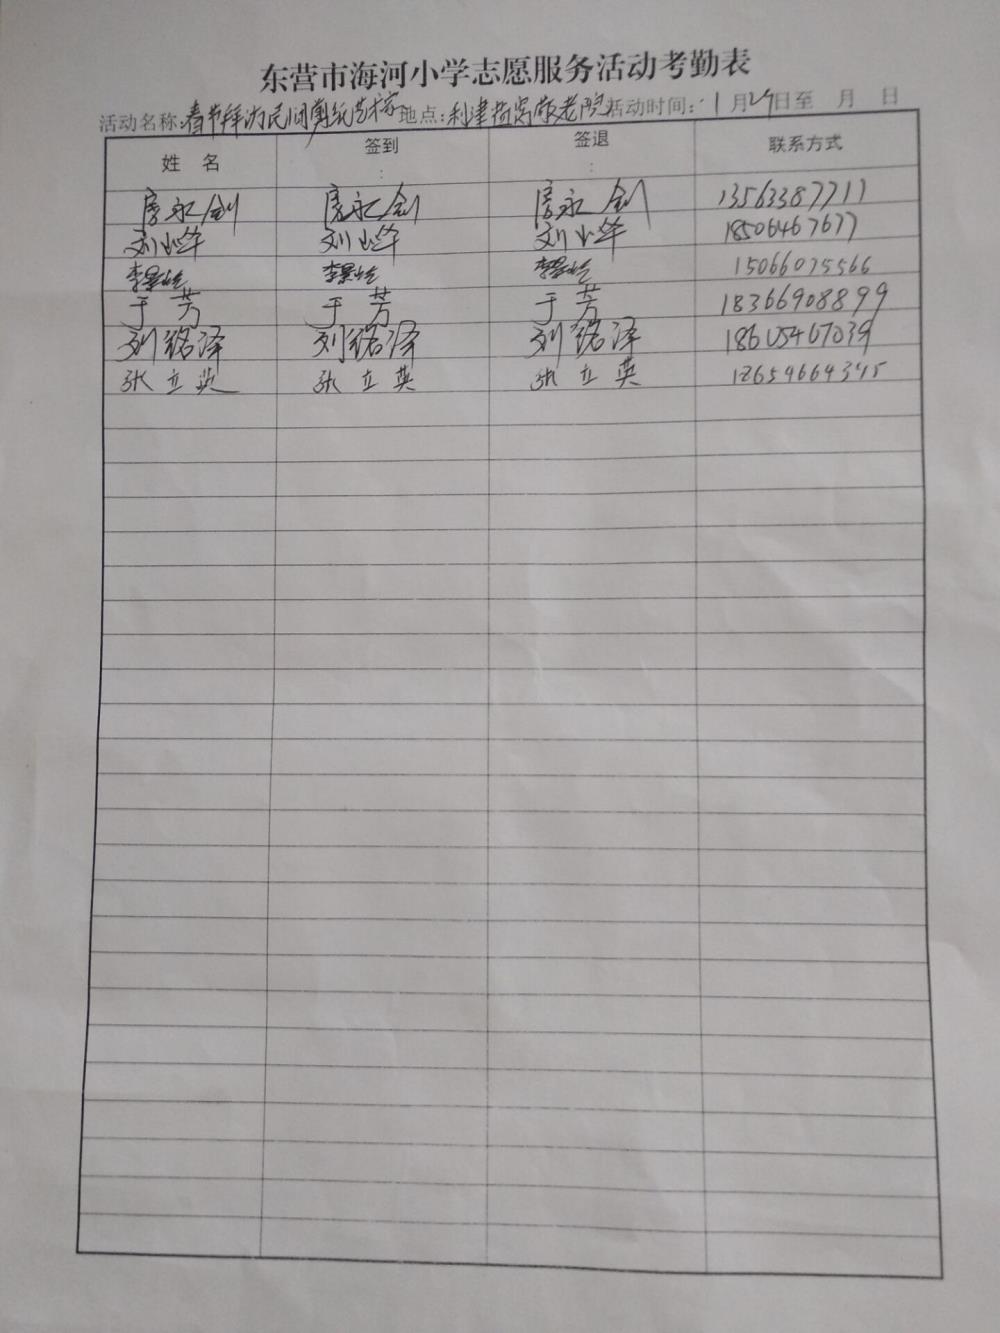 东营市海河小学志愿服务活动考勤表
活动名称:春节拜访民间剪纸艺术家 地点:利津盐窝敬老院 活动时间: 1月29日至 月 日
姓 名 签到 签退 联系方式
: :
房永剑 房永剑 房永剑 13563387711
刘 刘 刘 18506467677
李景 李景 李景 15066075566
于芳 于芳 于芳 18366908899
刘铭泽 刘铭泽 刘铭泽 18605467039
张立英 张立英 张立英 18654664345